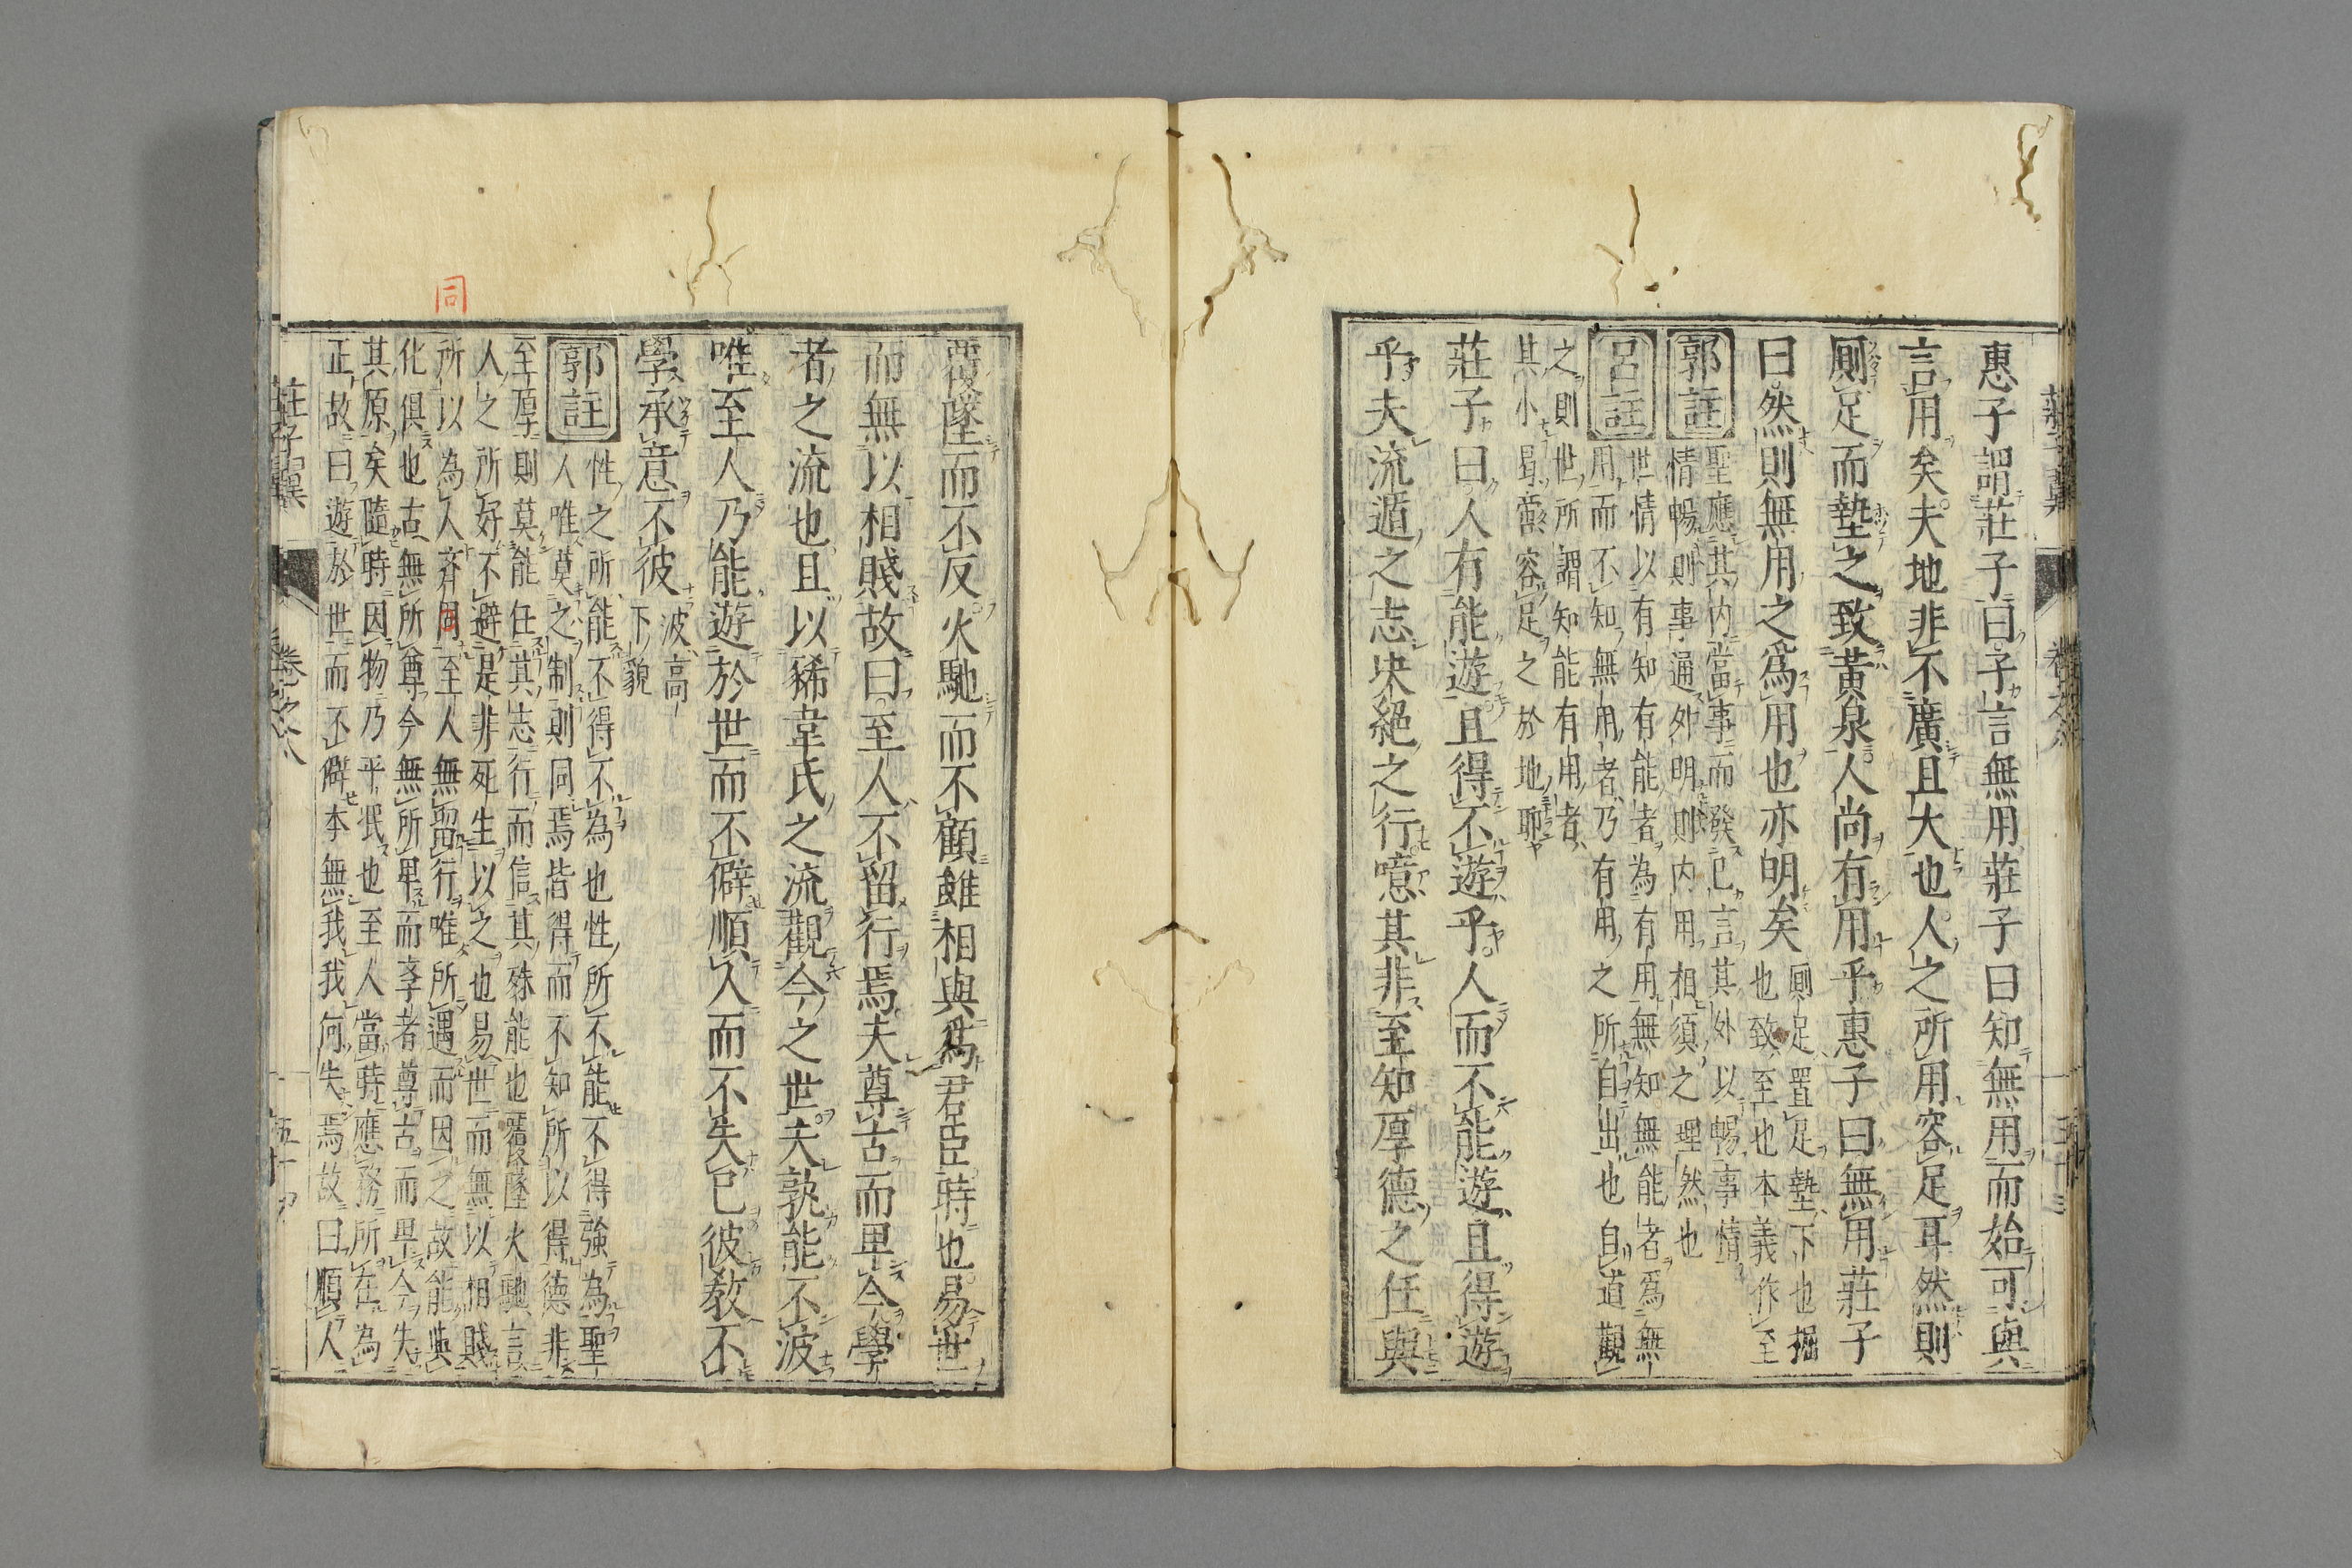 惠子謂莊子曰子言無用莊子曰知無用而始可與
言用矣夫地非不廣且大也人之所用容足耳然則
厠足而墊之致黃泉人尚有用乎惠子曰無用莊子
曰然則無用之爲用也亦明矣
厠足置足墊下也掘
也致至也本義作至
郭註
聖應其内當事而發已言其外以暢事情
情暢則事通外明則内用相須之理然也
呂註
世情以有知有能者為有用無知無能者爲無
用而不知無用者乃有用之所自出也自道觀
之則世所謂知能有用者
其小容足之於地耶
莊子曰人有能遊且得不遊乎人而不能遊且得遊
乎夫流遁之志决絕之行噫其非至知厚德之任與
覆墜而不反火馳而不顧雖相與爲君臣時也易世
而無以相賤故曰至人不留行焉夫尊古而卑今學
者之流也且以狶韋氏之流觀今之世夫孰能不波
唯至人乃能遊於世而不僻順人而不失己彼教不
學承意不彼
波高
下貌
郭註
性之所能不得不為也性所不能不得強為聖
人唯莫之制則同焉皆得而不知所以得德非
至厚則莫能任其志行而信其殊能也覆墜火馳言
人之所好不避是非死生以之也易世而無以相賤
所以為人齊同至人無留行唯所遇而因之故能與
化俱也古無所尊今無所卑而孝者尊古而卑今失
其原矣隨時因物乃平泯也至人當時應務所在為
正故曰遊於世而不僻本無我我何失焉故曰順人
莊子翼
卷之八
五十
同